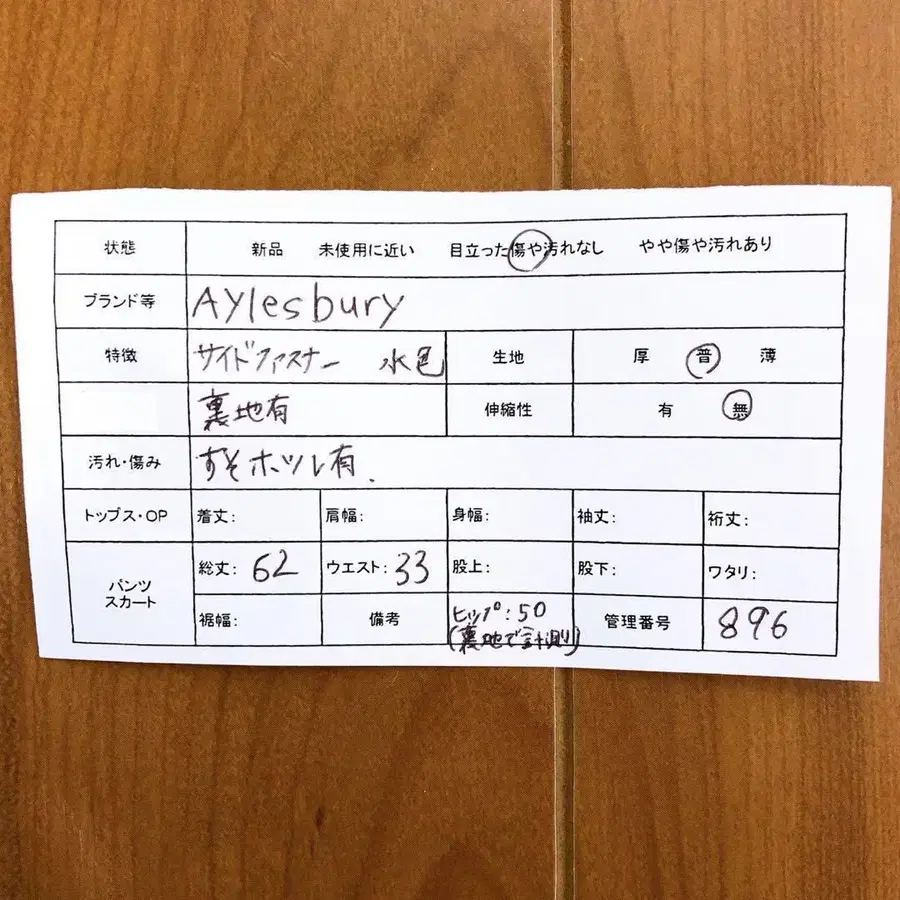 状態 新品 未使用に近い 目立った傷や汚れなし やや傷や汚れあり
ブランド等 Aylesbury
特徴 サイドファスナー 水色 生地 厚 普 薄
裏地有 伸縮性 有 無
汚れ・傷み すそホツレ有.
トップス・OP 着丈: 肩幅: 身幅: 袖丈: 裄丈:
パンツ スカート 総丈: 62 ウエスト: 33 股上: 股下: ワタリ:
裾幅: 備考 ヒップ:50 (裏地で計測) 管理番号 896